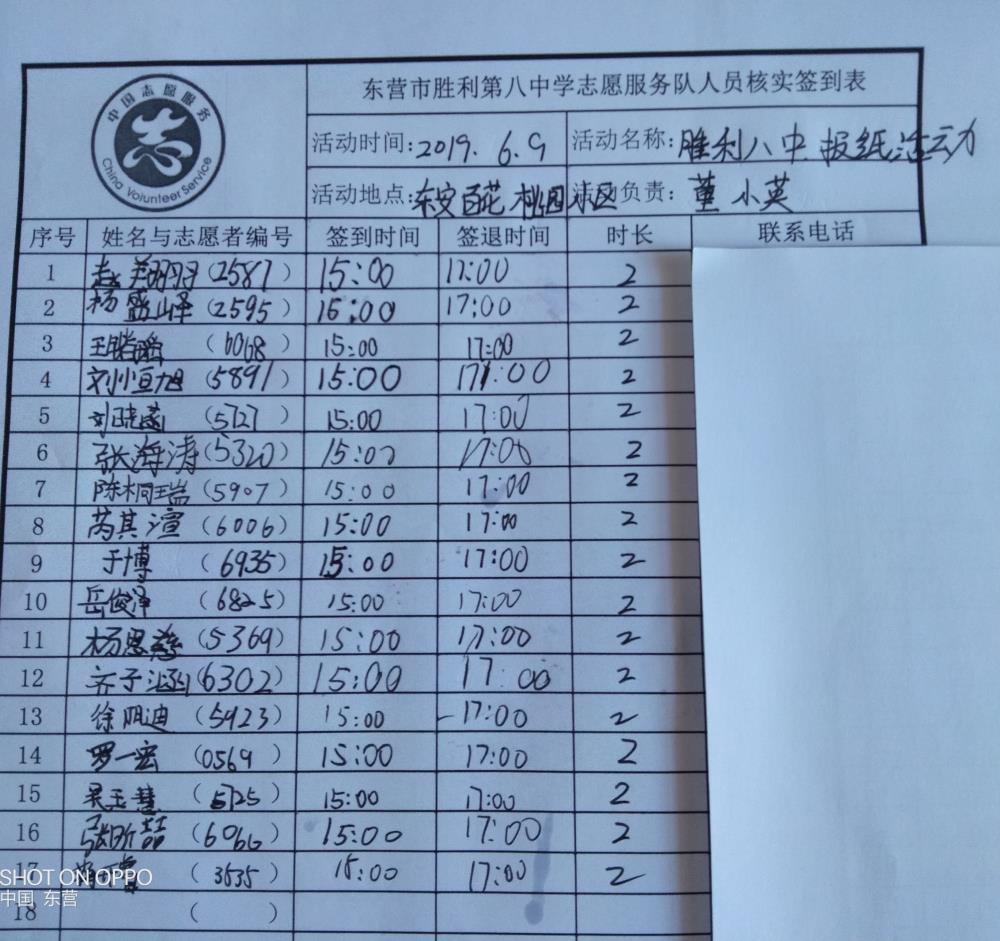 中国志愿服务
China Volunteer Service
东营市胜利第八中学志愿服务队人员核实签到表
活动时间:2019.6.9 活动名称:胜利八中报纸活动
活动地点:东安百花 桃园小区 活动负责:董小英
序号 姓名与志愿者编号 签到时间 签退时间 时长 联系电话
1 赵翔羽(2587) 15:00 17:00 2
2 杨盛峄(2595) 15:00 17:00 2
3 王 (6068) 15:00 17:00 2
4 刘小恒旭(5891) 15:00 17:00 2
5 刘晓菡(5727) 15:00 17:00 2
6 张海涛(5320) 15:00 17:00 2
7 陈桐瑞(5907) 15:00 17:00 2
8 芮其渲(6006) 15:00 17:00 2
9 于博(6935) 15:00 17:00 2
10 岳俊泽(6825) 15:00 17:00 2
11 杨思慈(5369) 15:00 17:00 2
12 齐子涵(6302) 15:00 17:00 2
13 徐阴迪(5923) 15:00 17:00 2
14 罗一宏(0569) 15:00 17:00 2
15 吴玉慧(5725) 15:00 17:00 2
16 张昕喆(6066) 15:00 17:00 2
17 (3535) 15:00 17:00 2
SHOT ON OPPO
中国 东营
18 ( )